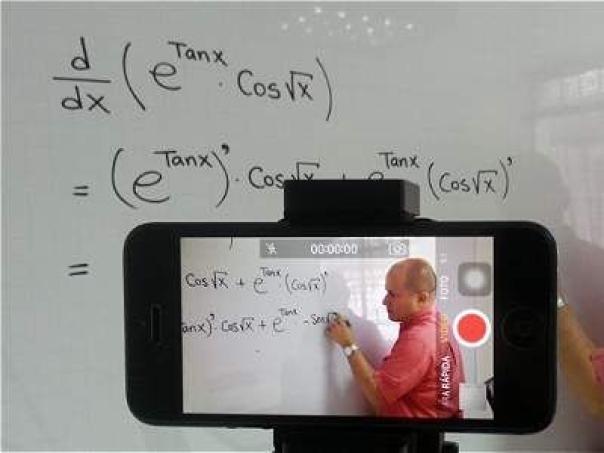 d/dx (e^Tanx · Cos√x)
= (e^Tanx)' · Cos√x + e^Tanx (Cos√x)'
=
00:00:00
Cos√x + e^Tanx · (Cos√x)'
anx)' · Cos√x + e^Tanx · -Sen√
A RÁPIDA VIDEO FOTO